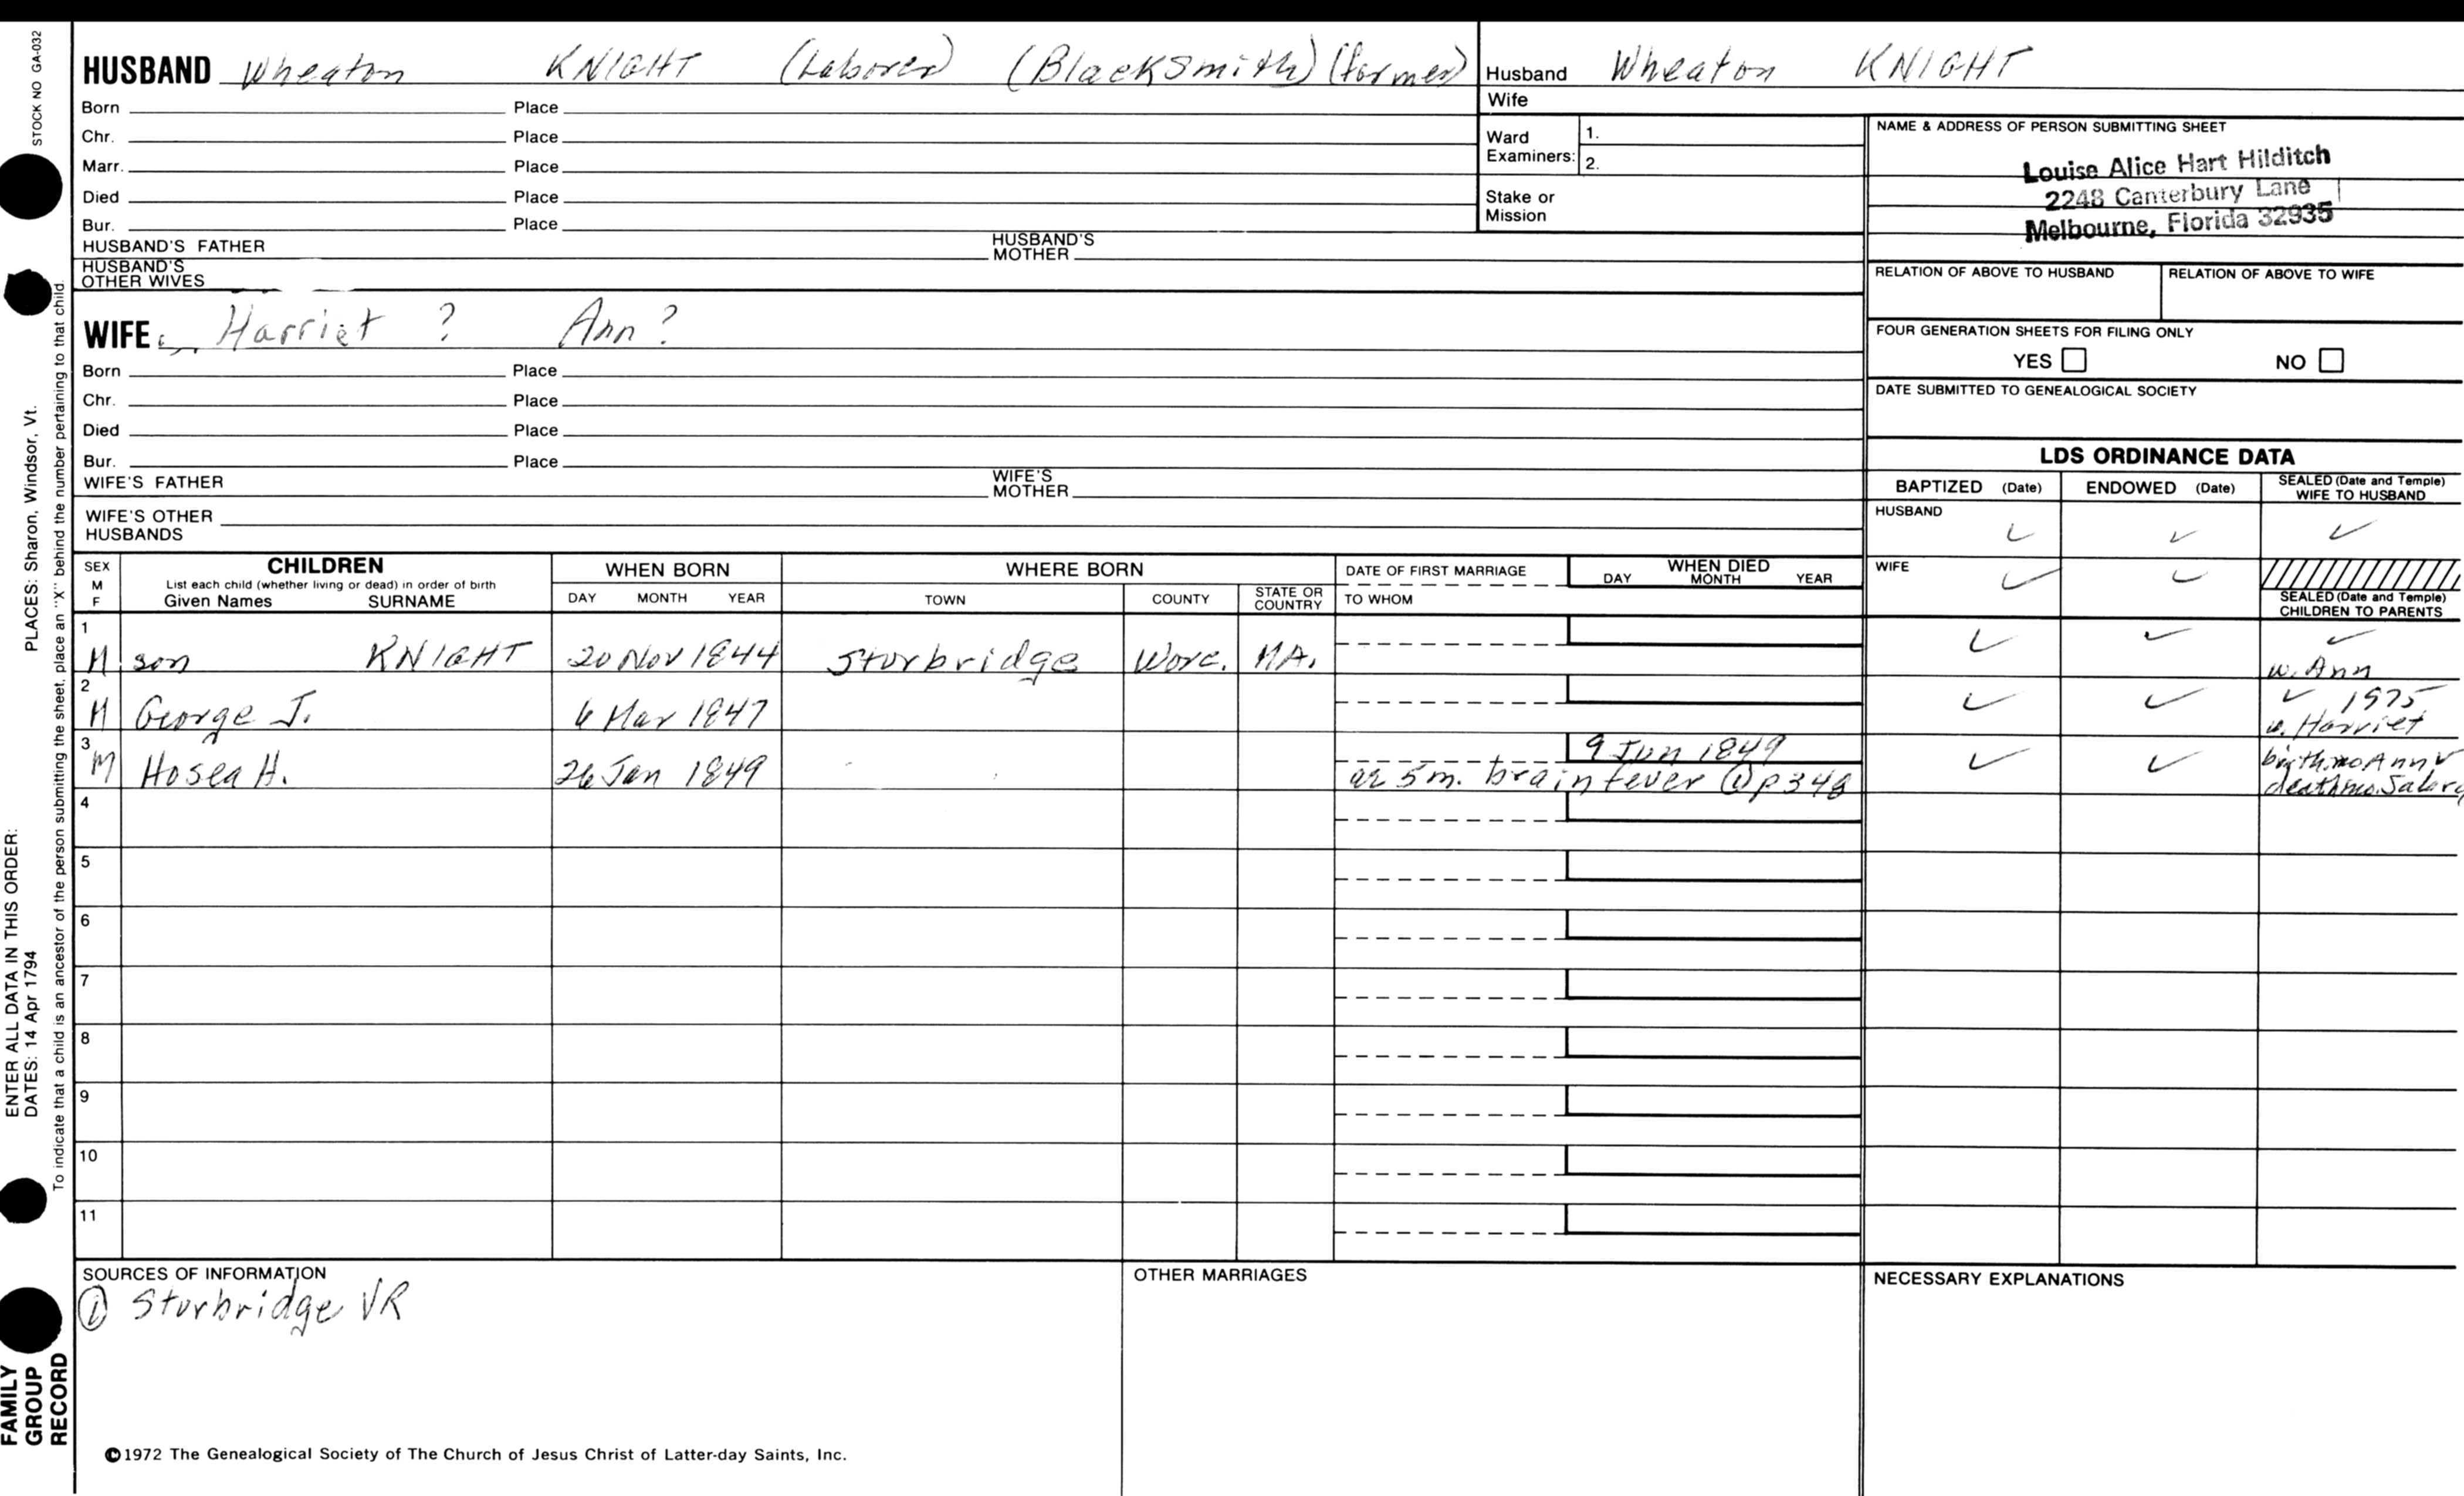 STOCK NO GA-032
HUSBAND Wheaton KNIGHT (Laborer) (Blacksmith) (farmer)
Born Place
Chr. Place
Marr. Place
Died Place
Bur. Place
HUSBAND'S FATHER HUSBAND'S MOTHER
HUSBAND'S OTHER WIVES
WIFE Harriet ? Ann ?
Born Place
Chr. Place
Died Place
Bur. Place
WIFE'S FATHER WIFE'S MOTHER
WIFE'S OTHER HUSBANDS
Husband Wheaton KNIGHT
Wife
Ward Examiners: 1.
2.
Stake or Mission
NAME & ADDRESS OF PERSON SUBMITTING SHEET
Louise Alice Hart Hilditch
2248 Canterbury Lane
Melbourne, Florida 32935
RELATION OF ABOVE TO HUSBAND RELATION OF ABOVE TO WIFE
FOUR GENERATION SHEETS FOR FILING ONLY
YES NO
DATE SUBMITTED TO GENEALOGICAL SOCIETY
LDS ORDINANCE DATA
BAPTIZED (Date) ENDOWED (Date) SEALED (Date and Temple) WIFE TO HUSBAND
HUSBAND ✓ ✓ ✓
WIFE ✓ ✓
SEALED (Date and Temple) CHILDREN TO PARENTS
SEX M F
CHILDREN
List each child (whether living or dead) in order of birth
Given Names SURNAME
WHEN BORN
DAY MONTH YEAR
WHERE BORN
TOWN COUNTY STATE OR COUNTRY
DATE OF FIRST MARRIAGE
TO WHOM
WHEN DIED
DAY MONTH YEAR
1 M son KNIGHT 20 Nov 1844 Sturbridge Worc. MA. ✓ ✓ ✓ w. Ann
2 M George J. 6 Mar 1847 ✓ ✓ ✓ 1975 w. Harriet
3 M Hosea H. 26 Jan 1849 9 Jun 1849
ae 5m. brain fever ① p348 ✓ ✓ birth mo Ann ✓
death mo.
4
5
6
7
8
9
10
11
SOURCES OF INFORMATION
① Sturbridge VR
OTHER MARRIAGES
NECESSARY EXPLANATIONS
©1972 The Genealogical Society of The Church of Jesus Christ of Latter-day Saints, Inc.
ENTER ALL DATA IN THIS ORDER:
DATES: 14 Apr 1794 PLACES: Sharon, Windsor, Vt.
To indicate that a child is an ancestor of the person submitting the sheet, place an "X" behind the number pertaining to that child.
FAMILY
GROUP
RECORD